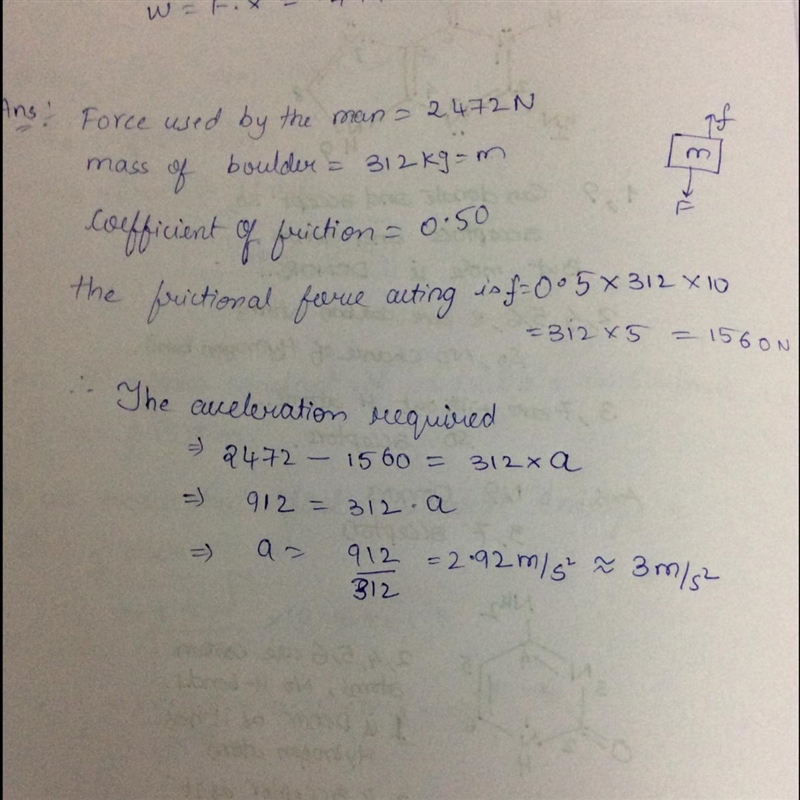 W = F. x =
Ans: Force used by the man = 2472N
mass of boulder = 312 kg = m
f
m
F
Coefficient of friction = 0.50
the frictional force acting is f = 0.5 × 312 × 10
= 312 × 5 = 1560N
∴ The aceleration required
⇒ 2472 − 1560 = 312 × a
⇒ 912 = 312 · a
⇒ a = 912/312 = 2.92 m/s² ≈ 3 m/s²